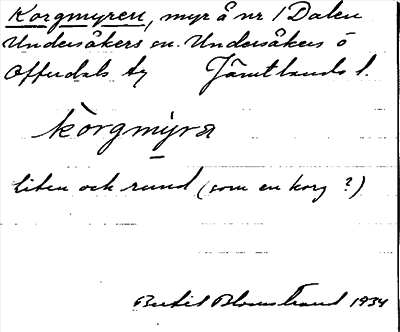 Korgmyren, myr å nr 1 Dalen
Undersåkers sn. Undersåkers o
Offerdals tg Jämtlands l.
korgmyra
liten och rund (som en korg ?)
Bertil Blomstrand 1934